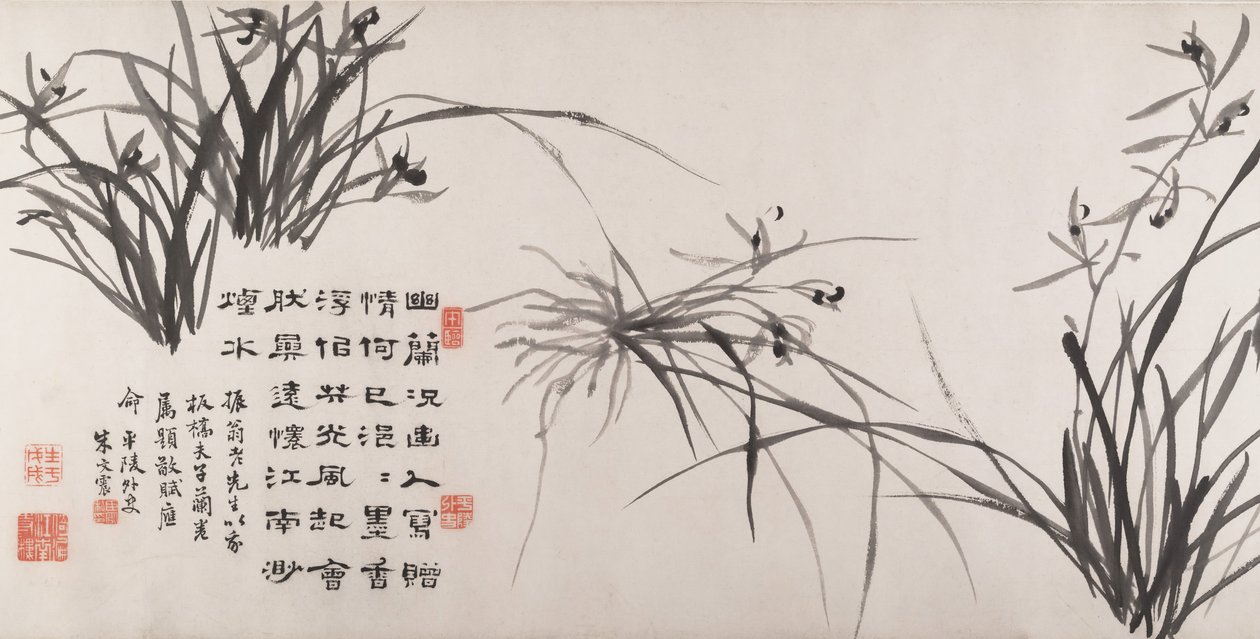 幽蘭況人寫贈
情何已浥〻墨香
浮佀共光風起會
遠懷江南渺
煙水
振翁老先生以家
板橋夫子蘭卷
属題敬賦應
命 平陵外史
朱文震
生于戊戌